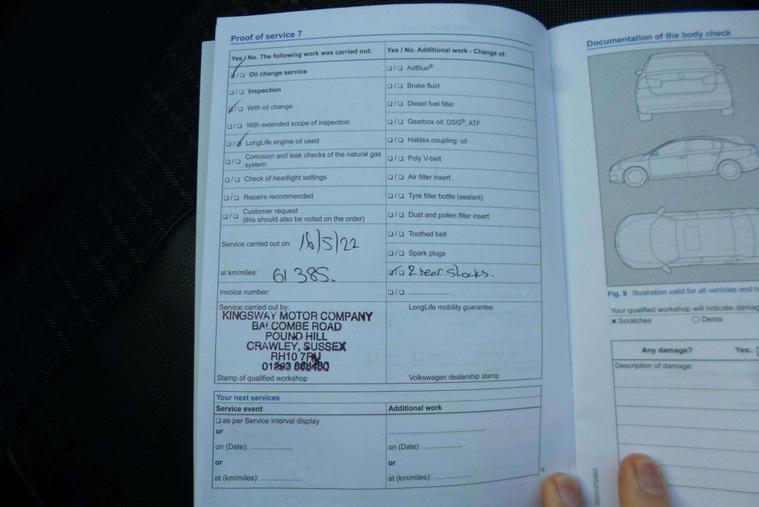 Proof of service 7
Yes / No. The following work was carried out:
Yes / No. Additional work - Change of:
☑/☐ Oil change service
☐/☐ AdBlue®
☐/☐ Inspection
☐/☐ Brake fluid
☑/☐ With oil change
☐/☐ Diesel fuel filter
☐/☐ With extended scope of inspection
☐/☐ Gearbox oil: DSG®, ATF
☐/☑ LongLife engine oil used
☐/☐ Haldex coupling: oil
☐/☐ Corrosion and leak checks of the natural gas
system
☐/☐ Poly V-belt
☐/☐ Check of headlight settings
☐/☐ Air filter insert
☐/☐ Repairs recommended
☐/☐ Tyre filler bottle (sealant)
☐/☐ Customer request
(this should also be noted on the order)
☐/☐ Dust and pollen filter insert
☐/☐ Toothed belt
Service carried out on: 16/5/22
☐/☐ Spark plugs
at km/miles: 61 385.
☑/☐ 2 rear shocks.
Invoice number:
☐/☐
Service carried out by:
LongLife mobility guarantee:
KINGSWAY MOTOR COMPANY
BALCOMBE ROAD
POUND HILL
CRAWLEY, SUSSEX
RH10
01293
Stamp of qualified workshop
Volkswagen dealership stamp
Your next services
Service event
Additional work
☐ as per Service interval display
or
on (Date):
on (Date):
or
or
at (km/miles):
at (km/miles):
Documentation of the body check
Fig. 9 Illustration valid for all vehicles and
Your qualified workshop will indicate
× Scratches
○ Dents
Any damage?
Yes:
Description of damage: